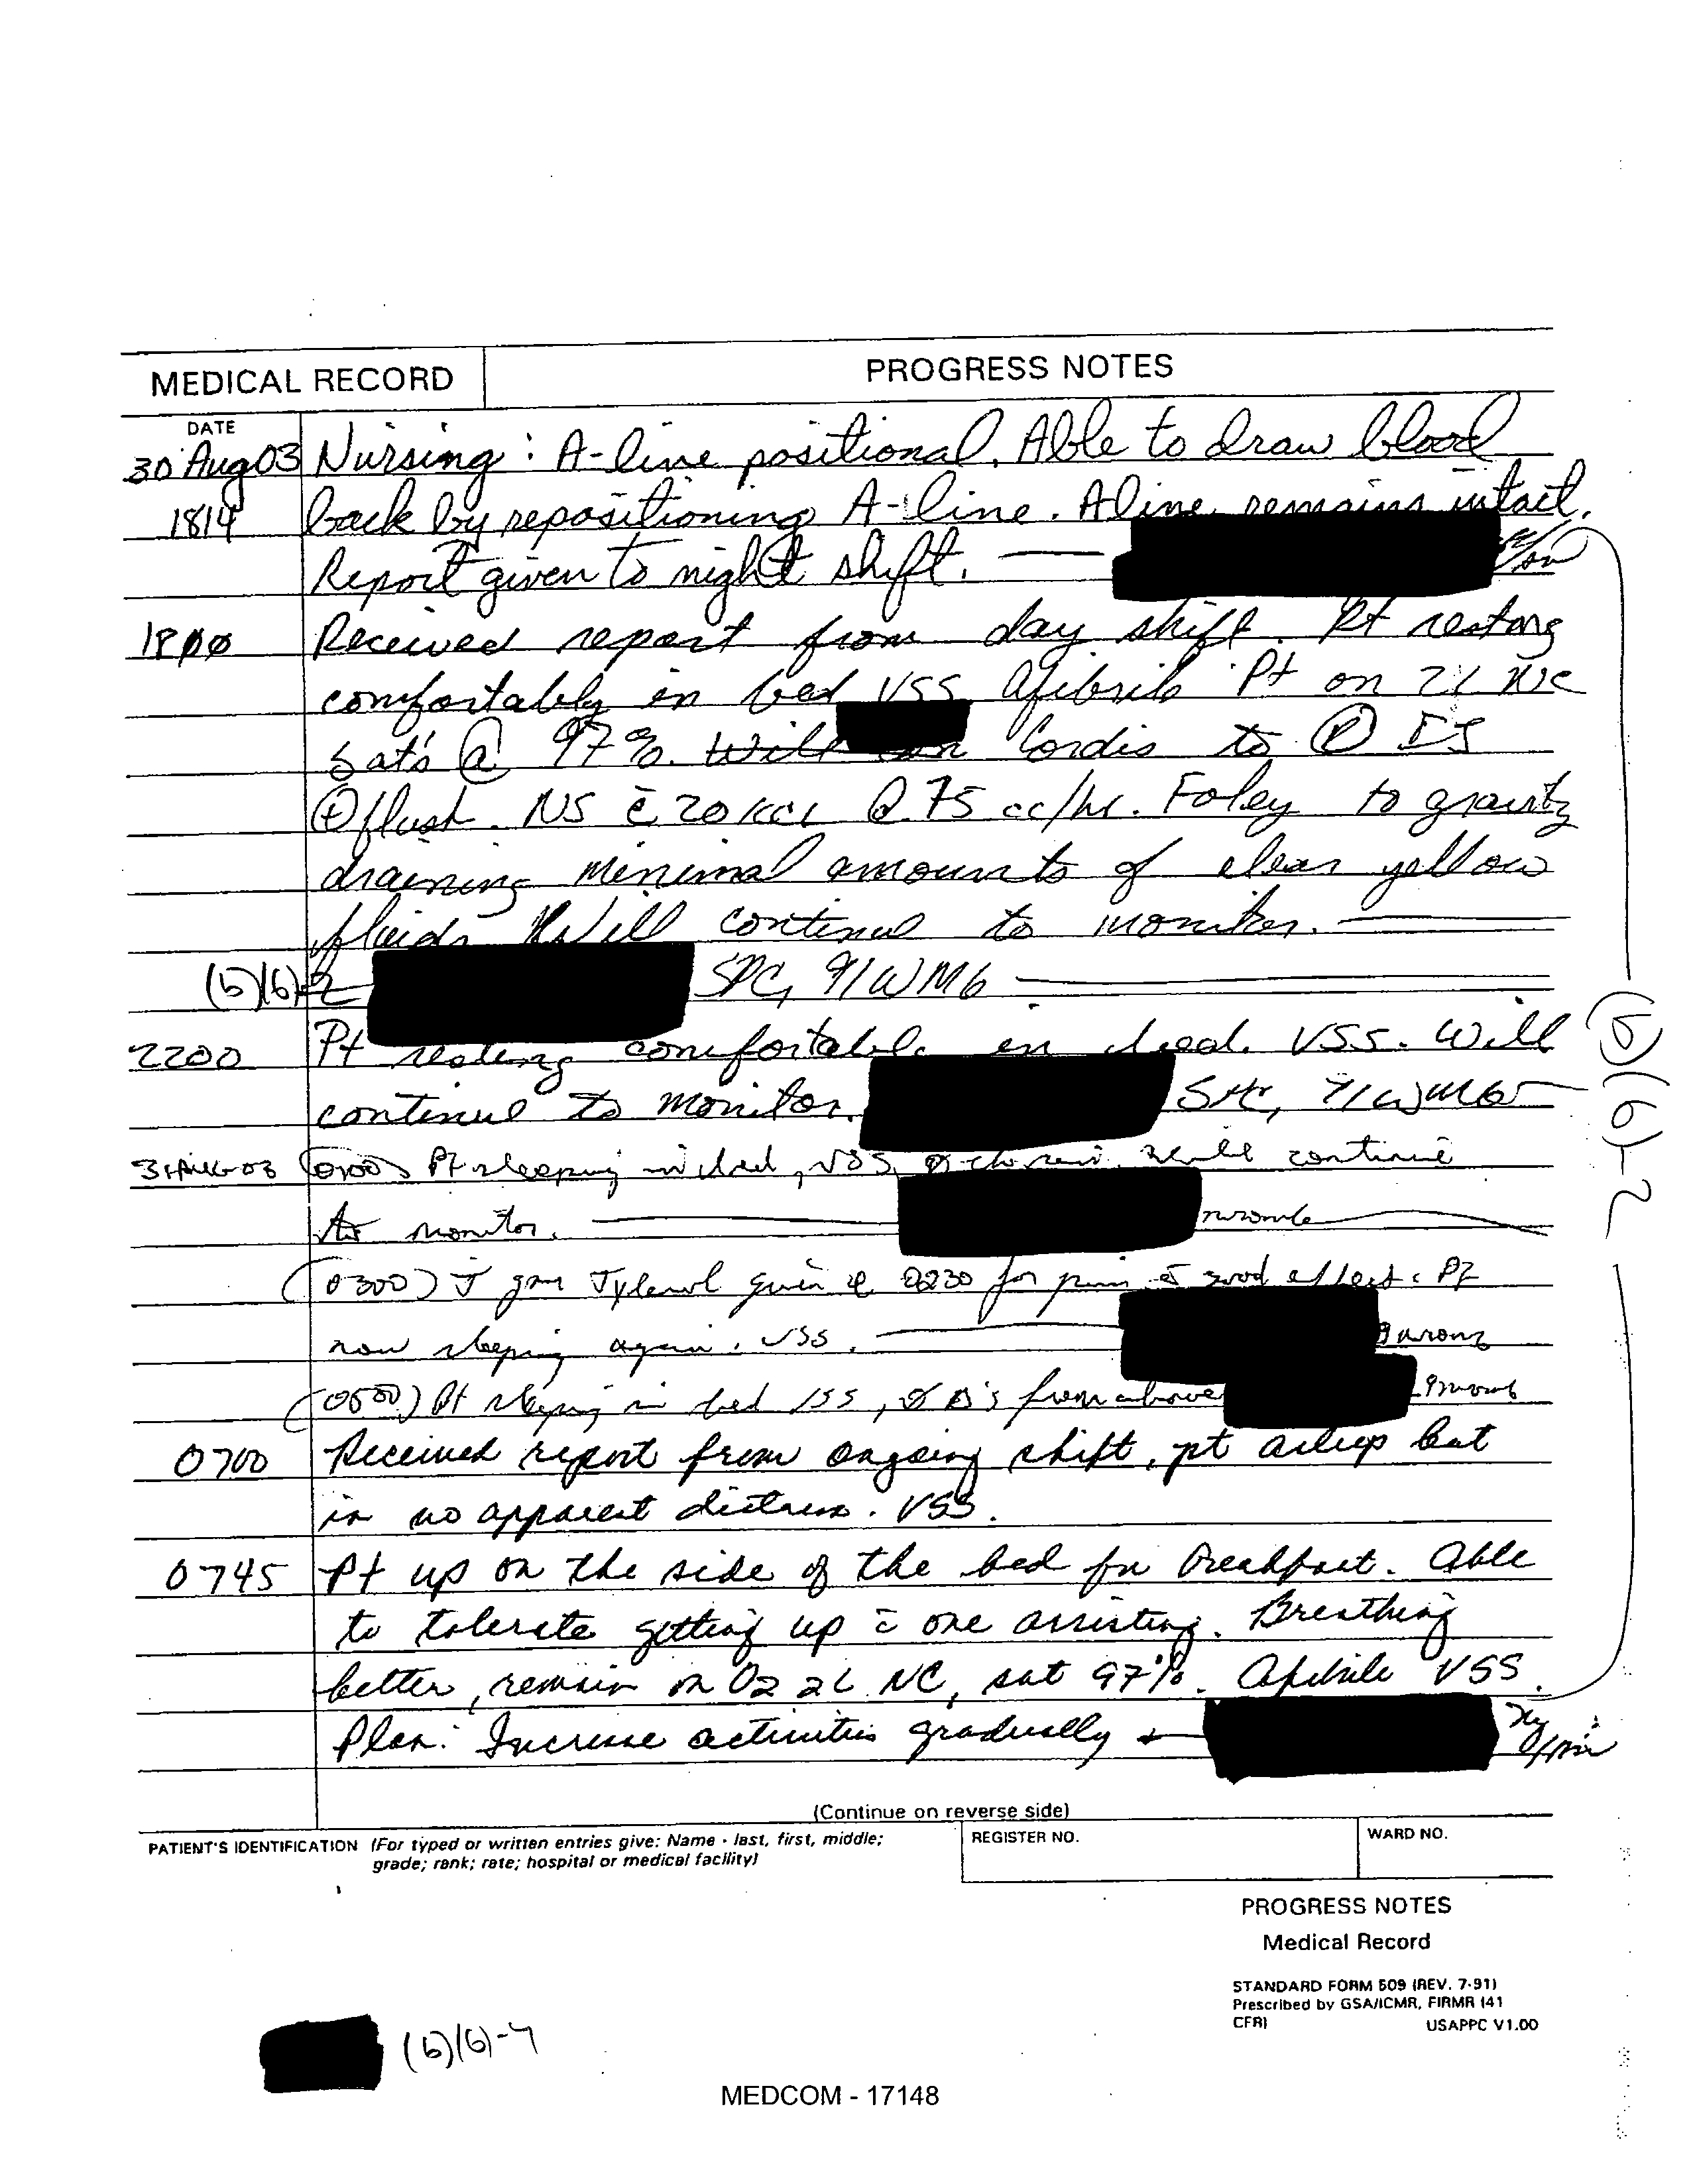 MEDICAL RECORD
PROGRESS NOTES
DATE
30 Aug 03 Nursing: A-line positional. Able to draw blood
1814 back by repositioning A-line. Aline remains intact.
Report given to night shift.
Received report from day shift. Pt resting
comfortably in bed VSS Afibrile Pt on 2L N/C
Sat's @ 97%. Will Cordis to
flush. NS c̄ 20 KCl @ 75 cc/hr. Foley to gravity
draining minimal amounts of clear yellow
fluids Will continue to monitor.
(b)(6)-2 SPC, 91WM6
2200 Pt resting comfortable in bed. VSS. Will
continue to monitor. SPC, 91WM6
(b)(6)-2
31 Aug 03 (0100) Pt sleeping in bed, VSS, will continue
to monitor.
(0300) gm Tylenol given @ 0230 for pain c̄ good effect. Pt
now sleeping again. VSS.
(0500) Pt sleeping in bed VSS, Δ's from above
0700 Received report from ongoing shift, pt asleep but
in no apparent distress. VSS.
0745 Pt up on the side of the bed for breakfast. Able
to tolerate getting up c̄ one assisting. Breathing
better, remain on O2 2L NC, sat 97%. Afibrile VSS.
Plan: Increase activities gradually
(Continue on reverse side)
PATIENT'S IDENTIFICATION (For typed or written entries give: Name - last, first, middle;
grade; rank; rate; hospital or medical facility)
REGISTER NO.
WARD NO.
PROGRESS NOTES
Medical Record
STANDARD FORM 509 (REV. 7-91)
Prescribed by GSA/ICMR, FIRMR (41
CFR)
USAPPC V1.00
(b)(6)-4
MEDCOM - 17148